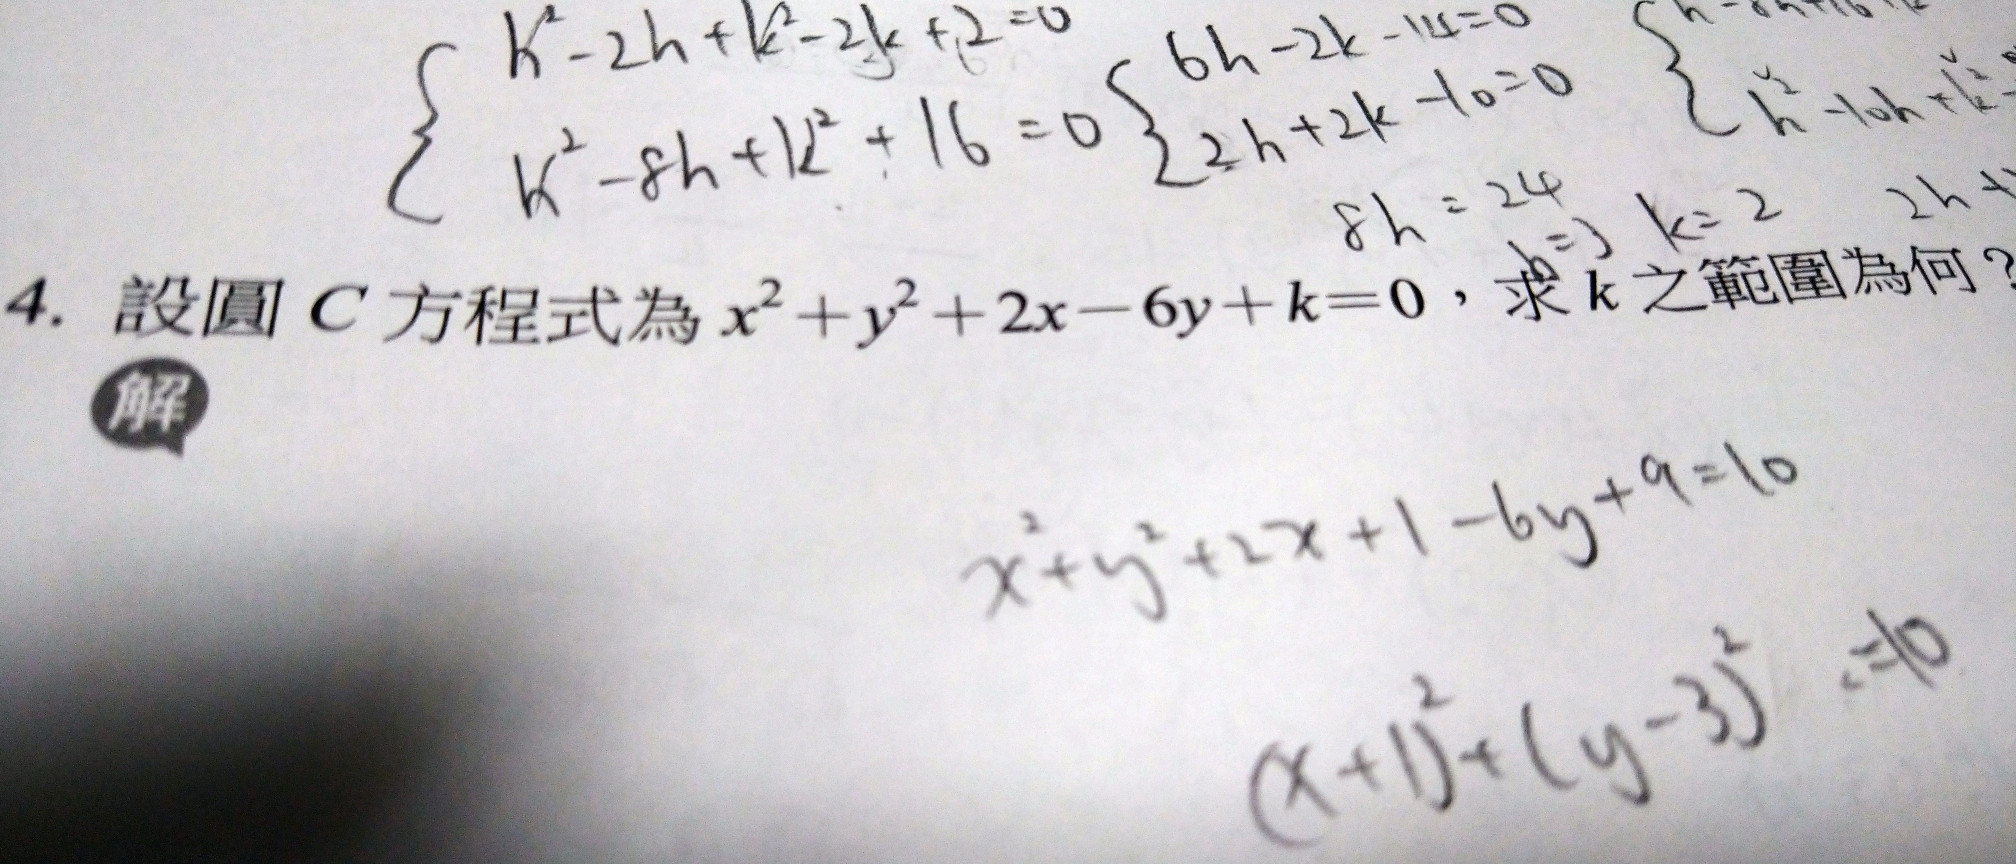 h²-2h+k²-2k+2=0
h²-8h+k²+16=0
6h-2k-14=0
2h+2k-10=0
h²-10h+k²
8h=24
h=3 k=2
2h+
4. 設圓 C 方程式為 x²+y²+2x-6y+k=0，求 k 之範圍為何？
解
x²+y²+2x+1-6y+9=10
(x+1)²+(y-3)²=10